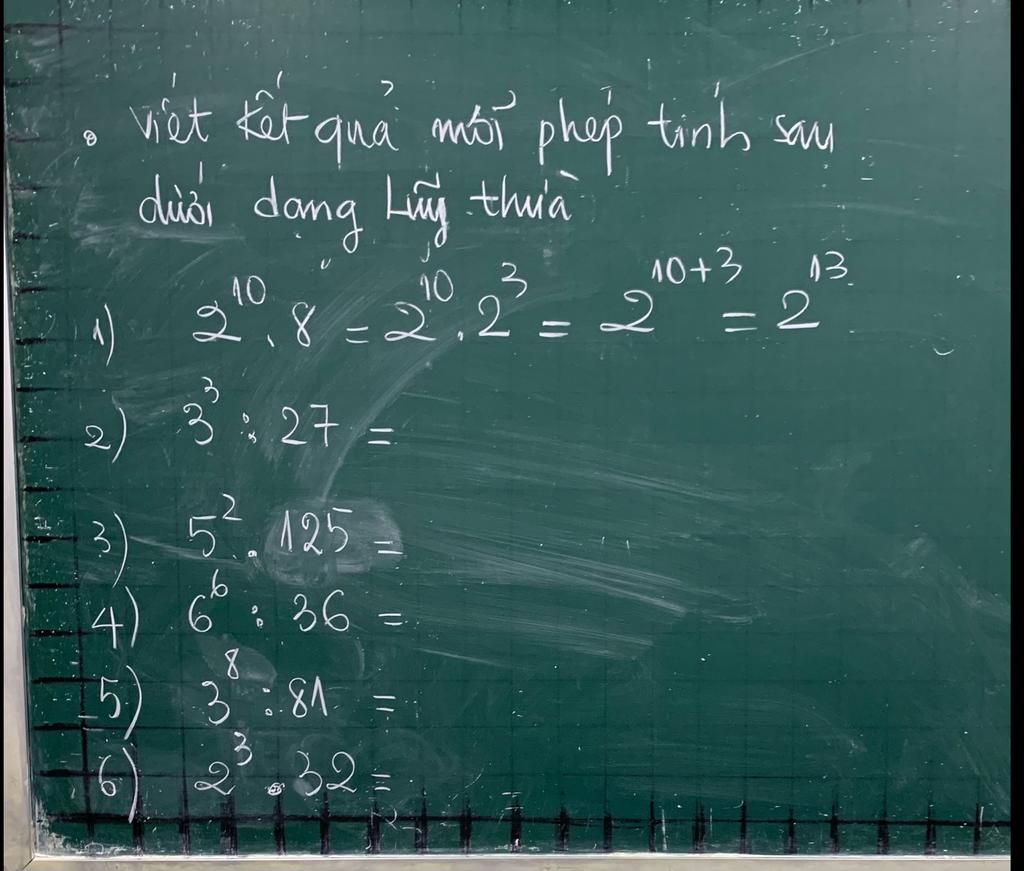 • viết kết quả mỗi phép tính sau
dưới dạng Lũy thừa
1) 2¹⁰ . 8 = 2¹⁰ . 2³ = 2¹⁰⁺³ = 2¹³
2) 3³ : 27 =
3) 5² . 125 =
4) 6⁶ : 36 =
5) 3⁸ : 81 =
6) 2³ . 32 =